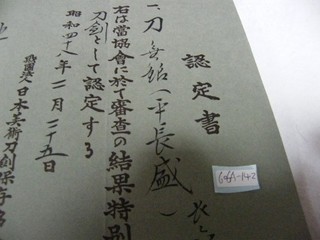 認定書
一、刀 無銘(平長盛)
長さ
右は當協會に於て審査の結果特別
刀剣として認定する
昭和四十八年二月二十五日
財團法人日本美術刀剣保存
606A-142